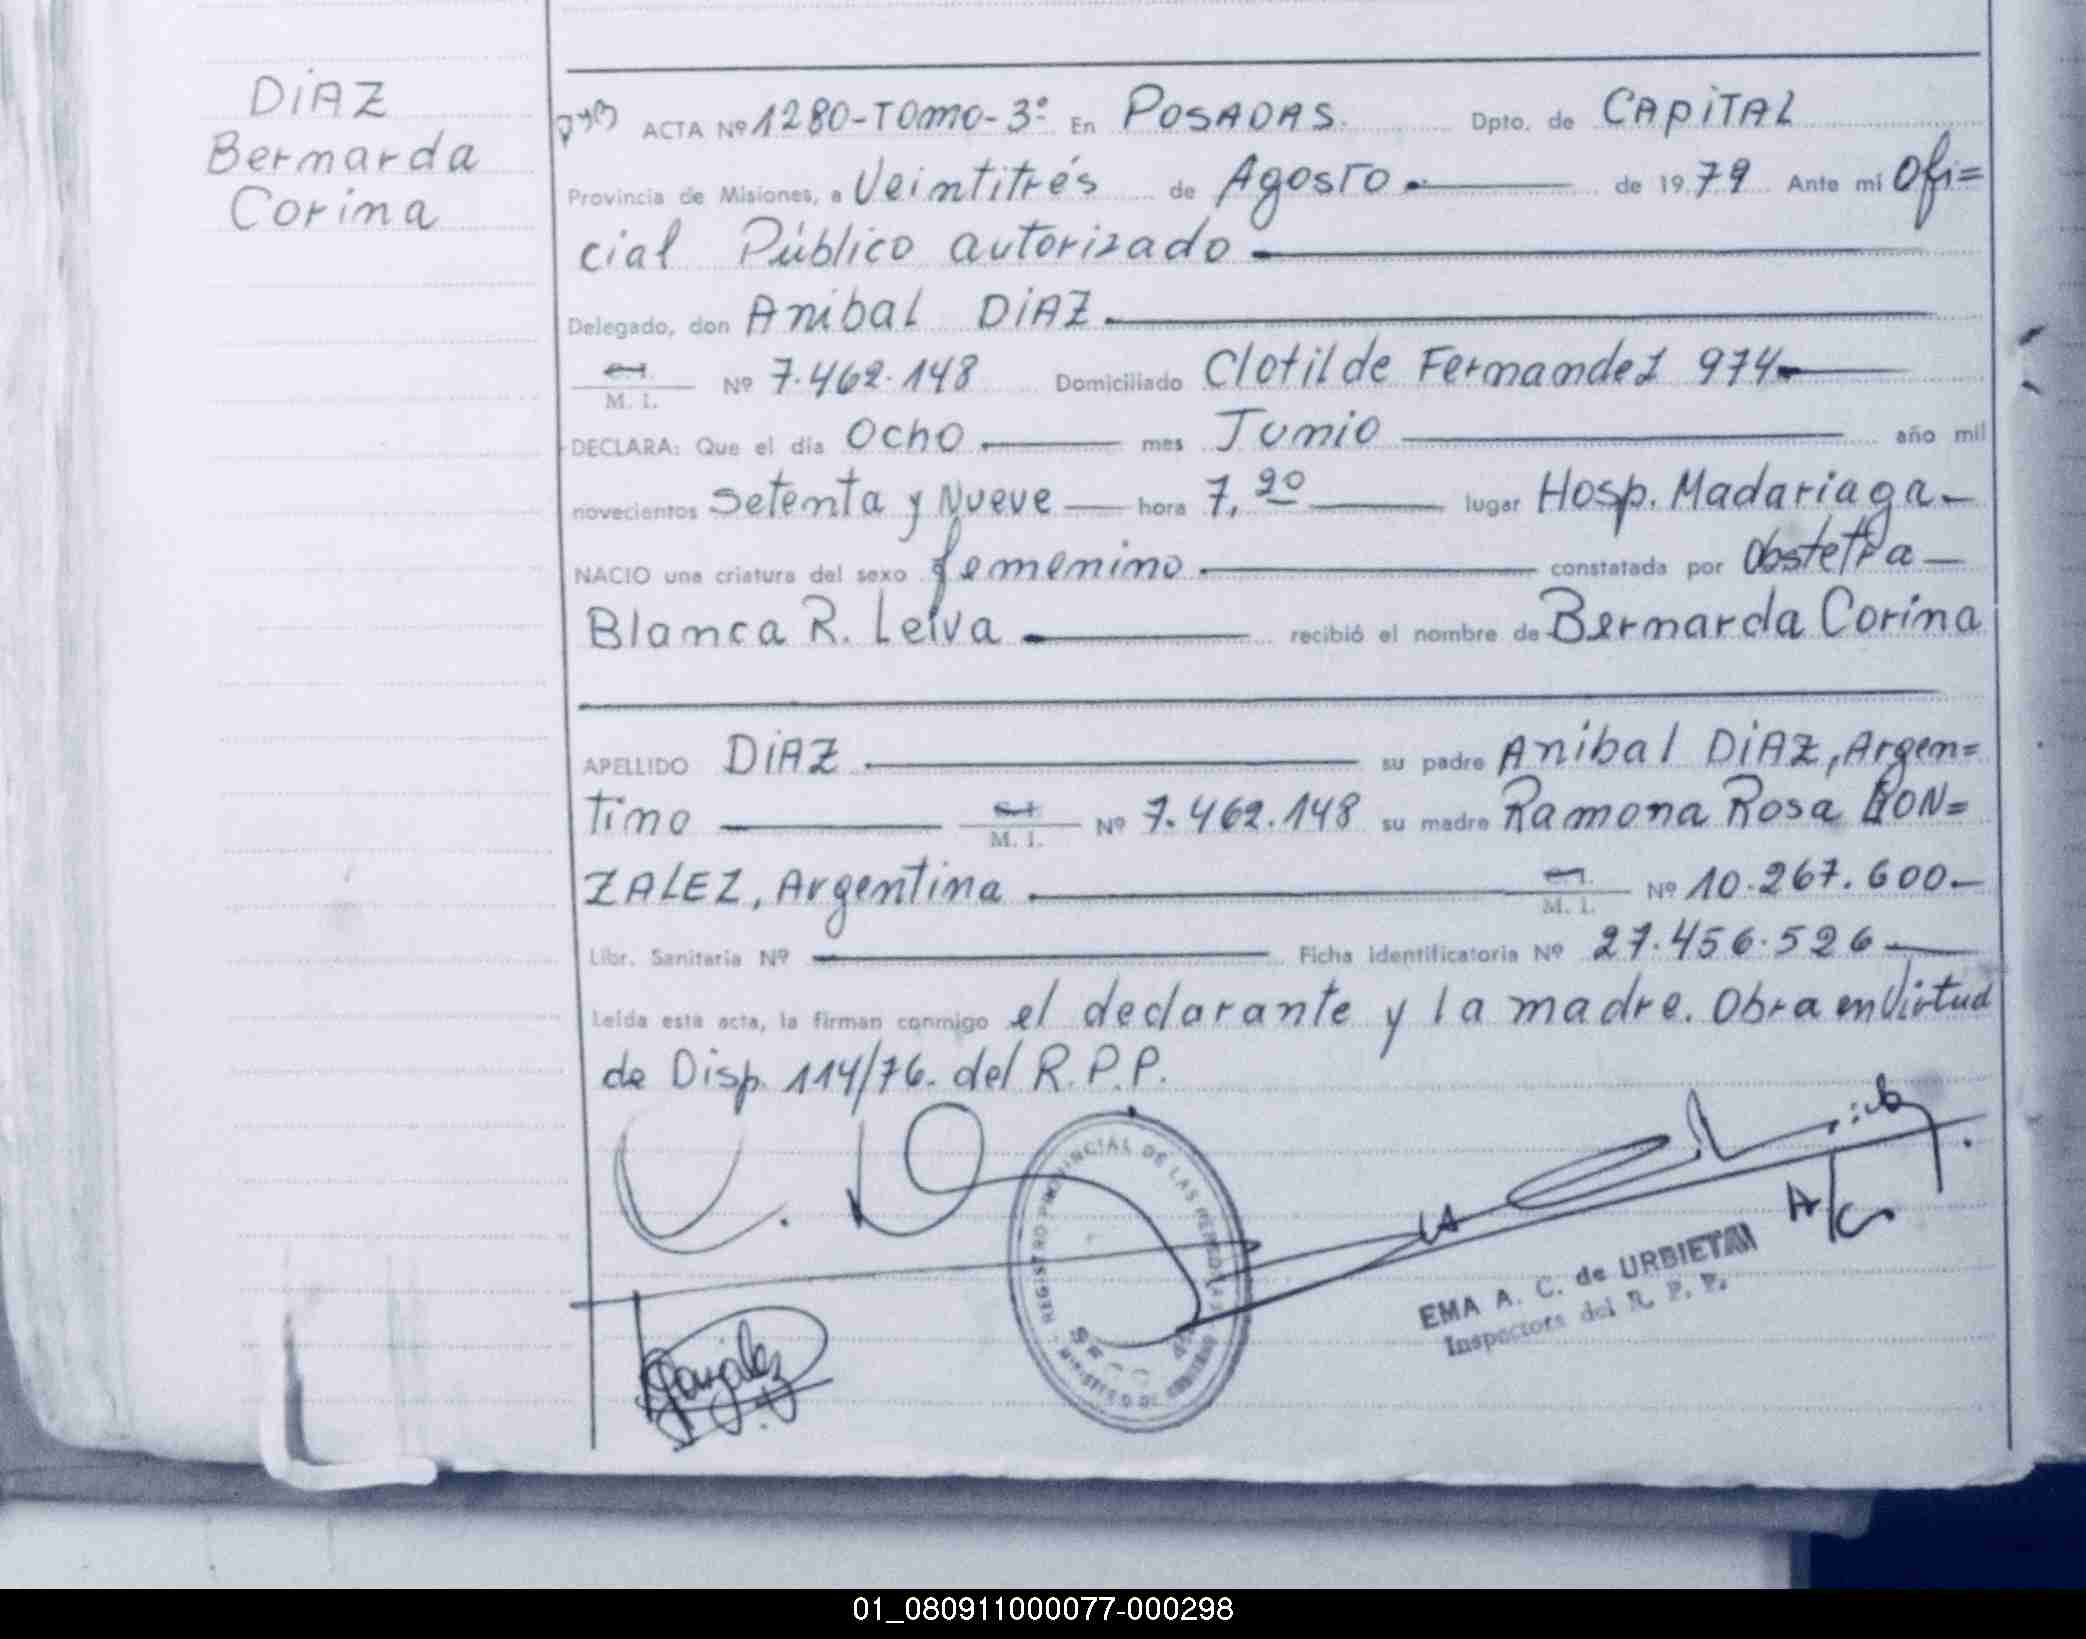 DiAZ
Bernarda
Corina
ACTA Nº 1280-TOmO-3º En POSADAS. Dpto. de CAPiTAL
Provincia de Misiones, a Veintitrés de Agosto de 1979 Ante mi Ofi=
cial Público autorizado
Delegado, don Anibal DiAZ
M. I. Nº 7.462.148 Domiciliado Clotilde Fernandez 974
DECLARA: Que el día Ocho mes Junio año mil
novecientos Setenta y Nueve hora 7,20 lugar Hosp. Madariaga
NACIO una criatura del sexo femenino constatada por Obstetra
Blanca R. Leiva recibió el nombre de Bernarda Corina
APELLIDO DiAZ su padre Anibal DiAZ, Argen=
tino M. I. Nº 7.462.148 su madre Ramona Rosa GON=
ZALEZ, Argentina M. I. Nº 10.267.600
Libr. Sanitaria Nº Ficha Identificatoria Nº 27.456.526
Leída esta acta, la firman conmigo el declarante y la madre. Obra en Virtud
de Disp. 114/76. del R.P.P.
REGISTRO PROVINCIAL DE LAS PERSONAS
EMA A. C. de URBIETA
Inspectora del R. P. P.
González
01_080911000077-000298